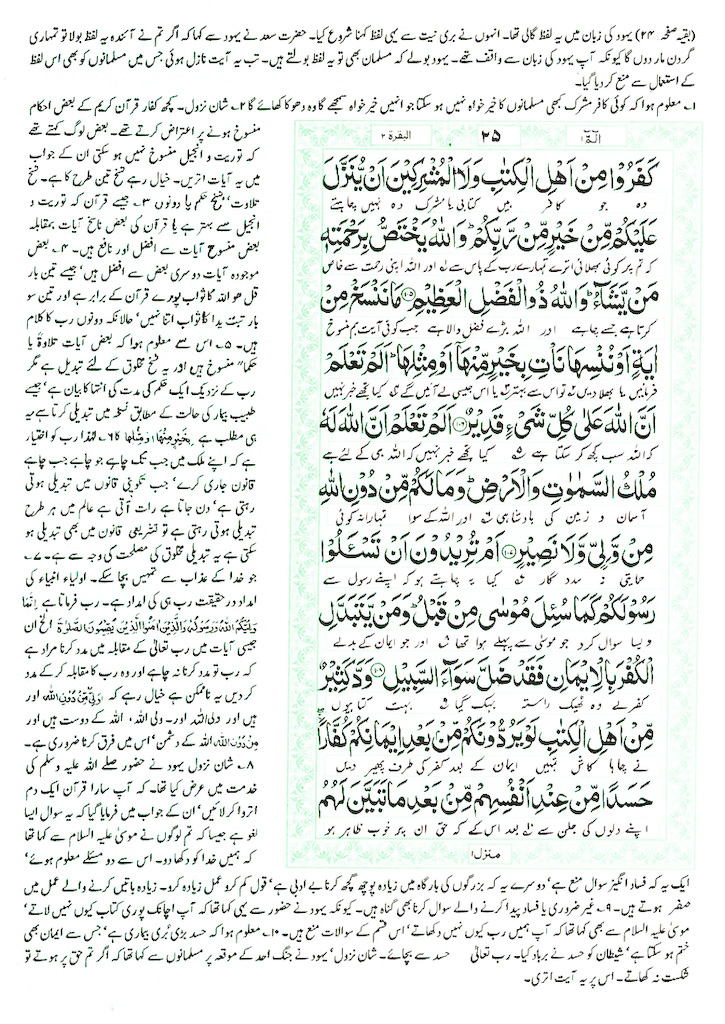 (بقیہ صفحہ ۲۴) یہود کی زبان میں یہ لفظ گالی تھا۔ انہوں نے بری نیت سے یہی لفظ کہنا شروع کیا۔ حضرت سعد نے یہود سے کہا کہ اگر تم نے آئندہ یہ لفظ بولا تو تمہاری
گردن مار دوں گا کیونکہ آپ یہود کی زبان سے واقف تھے۔ یہود بولے کہ مسلمان بھی تو یہ لفظ بولتے ہیں۔ تب یہ آیت نازل ہوئی جس میں مسلمانوں کو بھی اس لفظ
کے استعمال سے منع کر دیا گیا۔
۱۔ معلوم ہوا کہ کوئی کافر مشرک کبھی مسلمانوں کا خیر خواہ نہیں ہو سکتا جو انہیں خیر خواہ سمجھے گا وہ دھوکا کھائے گا ۲۔ شان نزول۔ کچھ کفار قرآن کریم کے بعض احکام
منسوخ ہونے پر اعتراض کرتے تھے۔ بعض لوگ کہتے تھے
کہ توریت و انجیل منسوخ نہیں ہو سکتی ان کے جواب
میں یہ آیات اتریں۔ خیال رہے نسخ تین طرح کا ہے۔ نسخ
تلاوت، نسخ حکم یا دونوں ۳۔ جیسے قرآن کہ توریت و
انجیل سے بہتر ہے یا قرآن کی بعض ناسخ آیات بمقابلہ
بعض منسوخ آیات سے افضل اور نافع ہیں۔ ۴۔ بعض
موجودہ آیات دوسری بعض سے افضل ہیں، جیسے تین بار
قل ھو اللہ کا ثواب پورے قرآن کے برابر ہے اور تین سو
بار تبت یدا کا ثواب اتنا نہیں، حالانکہ دونوں رب کا کلام
ہیں۔ ۵۔ اس سے معلوم ہوا کہ بعض آیات تلاوۃً یا
حکماً منسوخ ہیں اور یہ نسخ مخلوق کے لئے تبدیلی ہے مگر
رب کے نزدیک ایک حکم کی مدت کی انتہا کا بیان ہے، جیسے
طبیب بیمار کی حالت کے مطابق نسخہ میں تبدیلی کرتا ہے یہ
ہی مطلب ہے بِخَیْرٍ مِّنْهَا وَمِثْلِهَا کا ۶۔ لہٰذا رب کو اختیار
ہے کہ اپنے ملک میں جب تک چاہے جو چاہے جب چاہے
قانون جاری کرے، جب تکوینی قانون میں تبدیلی ہوتی
رہتی ہے، دن جاتا ہے رات آتی ہے عالم میں ہر طرح
تبدیلی ہوتی رہتی ہے تو تشریعی قانون میں بھی تبدیلی ہو
سکتی ہے یہ تبدیلی مخلوق کی مصلحت کی وجہ سے ہے۔ ۷۔
جو خدا کے عذاب سے تمہیں بچا سکے۔ اولیاء انبیاء کی
امداد در حقیقت رب ہی کی امداد ہے۔ رب فرماتا ہے اِنَّمَا
وَلِیُّكُمُ اللهُ وَرَسُوْلُهٗ وَالَّذِیْنَ اٰمَنُوا الَّذِیْنَ یُقِیْمُوْنَ الصَّلٰوةَ الخ ان
جیسی آیات میں رب تعالیٰ کے مقابلہ میں مدد کرنا مراد ہے
کہ رب تو مدد کرنا نہ چاہے اور وہ رب کا مقابلہ کر کے مدد
کر دیں یہ ناممکن ہے خیال رہے کہ وَلِیٌّ مِّنْ دُوْنِ اللهِ اور
ہیں اور ولی اللہ اور۔ ولی اللہ، اللہ کے دوست ہیں اور
مِنْ دُوْنِ اللهِ اللہ کے دشمن، اس میں فرق کرنا ضروری ہے۔
۸۔ شان نزول یہود نے حضور صلے اللہ علیہ وسلم کی
خدمت میں عرض کیا تھا۔ کہ آپ سارا قرآن ایک دم
اتروا کر لائیں، ان کے جواب میں فرمایا گیا کہ یہ سوال ایسا
لغو ہے جیسا کہ تم لوگوں نے موسیٰ علیہ السلام سے کہا تھا
کہ ہمیں خدا کو دکھا دو۔ اس سے دو مسئلے معلوم ہوئے،
الٓمّٓ ۱
۲۵
البقرة ۲
كَفَرُوْا مِنْ اَهْلِ الْكِتٰبِ وَلَا الْمُشْرِكِیْنَ اَنْ یُّنَزَّلَ
وہ جو کافر ہیں کتابی یا مشرک وہ نہیں چاہتے
عَلَیْكُمْ مِّنْ خَیْرٍ مِّنْ رَّبِّكُمْ وَاللهُ یَخْتَصُّ بِرَحْمَتِهٖ
کہ تم پر کوئی بھلائی اترے تمہارے رب کے پاس سے ۱ اور اللہ اپنی رحمت سے خاص
مَنْ یَّشَآءُ وَاللهُ ذُو الْفَضْلِ الْعَظِیْمِ ۱۰۵ مَا نَنْسَخْ مِنْ
کرتا ہے جسے چاہے اور اللہ بڑے فضل والا ہے جب کوئی آیت ہم منسوخ
اٰیَةٍ اَوْ نُنْسِهَا نَاْتِ بِخَیْرٍ مِّنْهَاۤ اَوْ مِثْلِهَا اَلَمْ تَعْلَمْ
فرمائیں یا بھلا دیں ۲ تو اس سے بہتر ۳ یا اس جیسی لے آئیں گے ۴ کیا تجھے خبر نہیں
اَنَّ اللهَ عَلٰی كُلِّ شَیْءٍ قَدِیْرٌ ۱۰۶ اَلَمْ تَعْلَمْ اَنَّ اللهَ لَهٗ
کہ اللہ سب کچھ کر سکتا ہے ۵ کیا تجھے خبر نہیں کہ اللہ ہی کے لئے ہے
مُلْكُ السَّمٰوٰتِ وَالْاَرْضِ وَمَا لَكُمْ مِّنْ دُوْنِ اللهِ
آسمان و زمین کی بادشاہی ۶ اور اللہ کے سوا تمہارا نہ کوئی
مِنْ وَّلِیٍّ وَّلَا نَصِیْرٍ ۱۰۷ اَمْ تُرِیْدُوْنَ اَنْ تَسْـَٔلُوْا
حمایتی نہ مددگار ۷ کیا یہ چاہتے ہو کہ اپنے رسول سے
رَسُوْلَكُمْ كَمَا سُىِٕلَ مُوْسٰی مِنْ قَبْلُ وَمَنْ یَّتَبَدَّلِ
ویسا سوال کرو جو موسیٰ سے پہلے ہوا تھا ۸ اور جو ایمان کے بدلے
الْكُفْرَ بِالْاِیْمَانِ فَقَدْ ضَلَّ سَوَآءَ السَّبِیْلِ ۱۰۸ وَدَّ كَثِیْرٌ
کفر لے وہ ٹھیک راستہ بہک گیا ۹ بہت کتابیوں
مِّنْ اَهْلِ الْكِتٰبِ لَوْ یَرُدُّوْنَكُمْ مِّنْ بَعْدِ اِیْمَانِكُمْ كُفَّارًا
نے چاہا کاش تمہیں ایمان کے بعد کفر کی طرف پھیر دیں
حَسَدًا مِّنْ عِنْدِ اَنْفُسِهِمْ مِّنْ بَعْدِ مَا تَبَیَّنَ لَهُمُ
اپنے دلوں کی جلن سے ۱۰ بعد اس کے کہ حق ان پر خوب ظاہر ہو
منزل ۱
ایک یہ کہ فساد انگیز سوال منع ہے، دوسرے یہ کہ بزرگوں کی بارگاہ میں زیادہ پوچھ گچھ کرنا بے ادبی ہے، قول کم کرو عمل زیادہ کرو۔ زیادہ باتیں کرنے والے عمل میں
صفر ہوتے ہیں۔ ۹۔ غیر ضروری یا فساد پیدا کرنے والے سوال کرنا بھی گناہ ہیں۔ کیونکہ یہود نے حضور سے یہی کہا تھا کہ آپ اچانک پوری کتاب کیوں نہیں لاتے،
موسیٰ علیہ السلام سے بھی کہا تھا کہ آپ ہمیں رب کیوں نہیں دکھاتے، اس قسم کے سوالات منع ہیں۔ ۱۰۔ معلوم ہوا کہ حسد بڑی بُری بیماری ہے، جس سے ایمان بھی
ختم ہو سکتا ہے، شیطان کو حسد نے برباد کیا۔ رب تعالیٰ حسد سے بچائے۔ شان نزول، یہود نے جنگ احد کے موقعہ پر مسلمانوں سے کہا تھا کہ اگر تم حق پر ہوتے تو
شکست نہ کھاتے۔ اس پر یہ آیت اتری۔